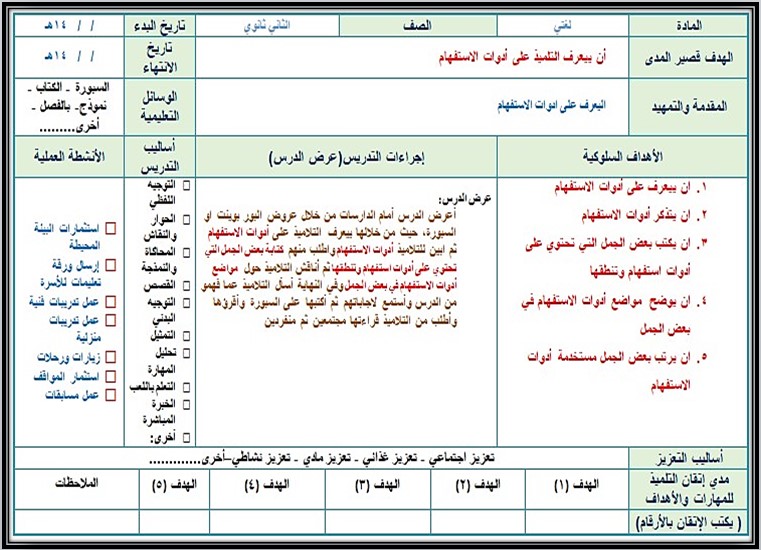 المادة لغتي الصف الثاني ثانوي تاريخ البدء / / ١٤هـ
الهدف قصير المدى أن يبعرف التلميذ على أدوات الاستفهام تاريخ الانتهاء / / ١٤هـ
المقدمة والتمهيد اليعرف على ادوات الاستفهام الوسائل التعليمية السبورة ـ الكتاب ـ
نموذج ـ بالفصل ـ
أخرى..........
الأهداف السلوكية
١. ان يبعرف على أدوات الاستفهام
٢. ان يتذكر أدوات الاستفهام
٣. ان يكتب بعض الجمل التي تحتوي على
أدوات استفهام وتنطقها
٤. ان يوضح مواضع أدوات الاستفهام في
بعض الجمل
٥. ان يرتب بعض الجمل مستخدمة أدوات
الاستفهام
إجراءات التدريس(عرض الدرس)
عرض الدرس:
أعرض الدرس أمام الدارسات من خلال عروض البور بوينت او
السبورة، حيث من خلالها يبعرف التلاميذ على أدوات الاستفهام
ثم ابين للتلاميذ أدوات الاستفهام واطلب منهم كتابة بعض الجمل التي
تحتوي على أدوات استفهام وتنطقها ثم أناقش التلاميذ حول مواضع
أدوات الاستفهام في بعض الجمل وفي النهاية أسأل التلاميذ عما فهمو
من الدرس وأستمع لاجاباتهم ثم أكتبها على السبورة وأقرؤها
وأطلب من التلاميذ قراءتها مجتمعين ثم منفردين
أساليب
التدريس
التوجيه
اللفظي
الحوار
والنقاش
المحاكاة
والنمذجة
القصص
التوجيه
البدني
التمثيل
تحليل
المهارة
التعلم باللعب
الخبرة
المباشرة
أخرى:
الأنشطة العملية
استثمارات البيئة
المحيطة
إرسال ورقة
تعليمات للأسرة
عمل تدريبات فنية
عمل تدريبات
منزلية
زيارات ورحلات
استثمار المواقف
عمل مسابقات
أساليب التعزيز تعزيز اجتماعي ـ تعزيز غذائي ـ تعزيز مادي ـ تعزيز نشاطي–أخرى.............
مدي إتقان التلميذ
للمهارات والأهداف
الهدف (١) الهدف (٢) الهدف (٣) الهدف (٤) الهدف (٥) الملاحظات
( يكتب الإتقان بالأرقام)